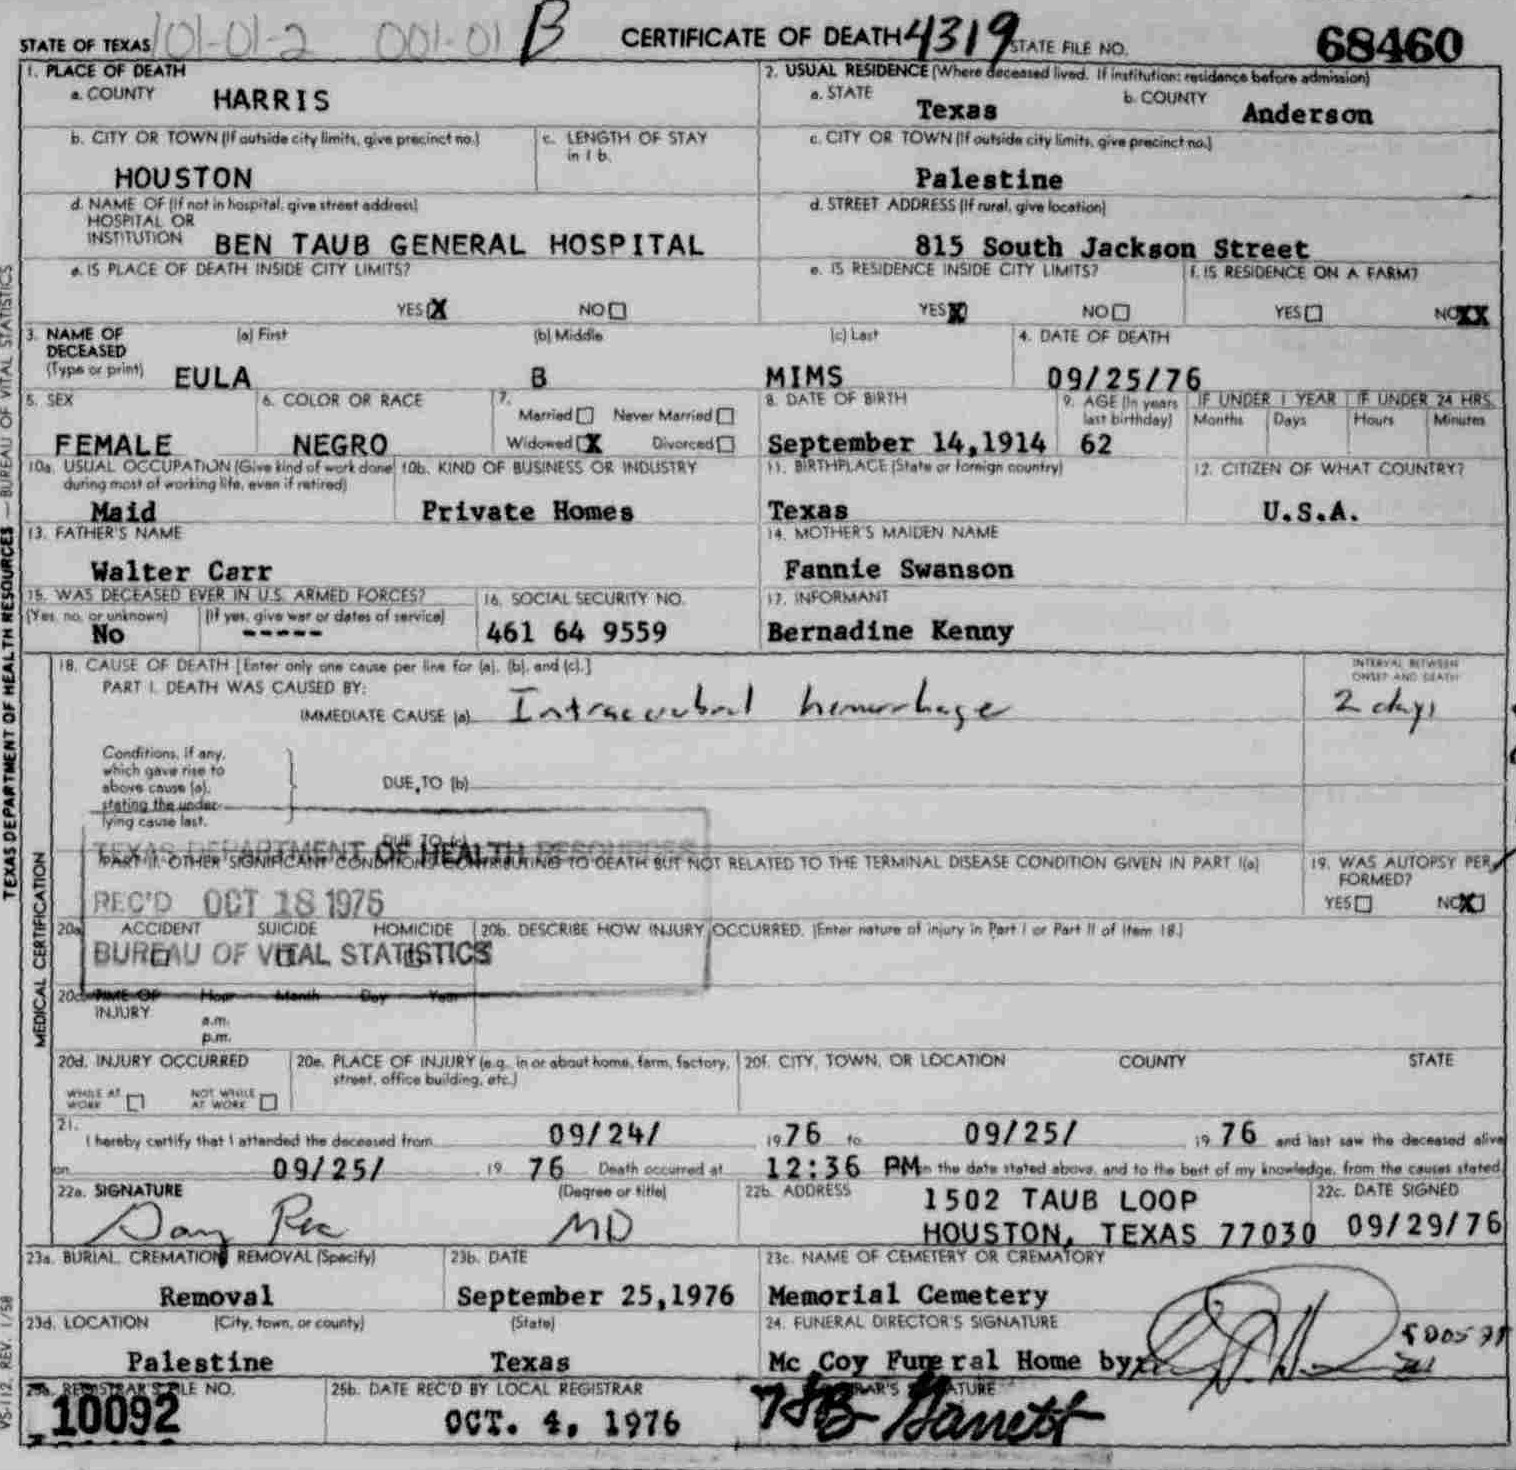 101-01-2 001-01 B CERTIFICATE OF DEATH 4319 STATE FILE NO. 68460
STATE OF TEXAS
1. PLACE OF DEATH
a. COUNTY HARRIS
2. USUAL RESIDENCE (Where deceased lived. If institution: residence before admission)
a. STATE Texas b. COUNTY Anderson
b. CITY OR TOWN (If outside city limits, give precinct no.) HOUSTON
c. LENGTH OF STAY in 1 b.
c. CITY OR TOWN (If outside city limits, give precinct no.)
Palestine
d. NAME OF (If not in hospital, give street address)
HOSPITAL OR
INSTITUTION BEN TAUB GENERAL HOSPITAL
d. STREET ADDRESS (If rural, give location)
815 South Jackson Street
e. IS PLACE OF DEATH INSIDE CITY LIMITS?
YES X NO
e. IS RESIDENCE INSIDE CITY LIMITS?
YES X NO
f. IS RESIDENCE ON A FARM?
YES NO XX
3. NAME OF DECEASED (Type or print)
(a) First EULA
(b) Middle B
(c) Last MIMS
4. DATE OF DEATH
09/25/76
5. SEX
FEMALE
6. COLOR OR RACE
NEGRO
7. Married Never Married
Widowed X Divorced
8. DATE OF BIRTH
September 14,1914
9. AGE (In years last birthday)
62
IF UNDER 1 YEAR
Months Days
IF UNDER 24 HRS.
Hours Minutes
10a. USUAL OCCUPATION (Give kind of work done during most of working life, even if retired)
Maid
10b. KIND OF BUSINESS OR INDUSTRY
Private Homes
11. BIRTHPLACE (State or foreign country)
Texas
12. CITIZEN OF WHAT COUNTRY?
U.S.A.
13. FATHER'S NAME
Walter Carr
14. MOTHER'S MAIDEN NAME
Fannie Swanson
15. WAS DECEASED EVER IN U.S. ARMED FORCES?
(Yes, no, or unknown) (If yes, give war or dates of service)
No -----
16. SOCIAL SECURITY NO.
461 64 9559
17. INFORMANT
Bernadine Kenny
18. CAUSE OF DEATH [Enter only one cause per line for (a), (b), and (c).]
PART I. DEATH WAS CAUSED BY:
IMMEDIATE CAUSE (a) Intracerebral hemorrhage
INTERVAL BETWEEN ONSET AND DEATH
2 days
Conditions, if any,
which gave rise to
above cause (a),
stating the under-
lying cause last.
DUE TO (b)
DUE TO (c)
TEXAS DEPARTMENT OF HEALTH RESOURCES
PART II. OTHER SIGNIFICANT CONDITIONS CONTRIBUTING TO DEATH BUT NOT RELATED TO THE TERMINAL DISEASE CONDITION GIVEN IN PART I(a)
REC'D OCT 18 1976
19. WAS AUTOPSY PERFORMED?
YES NO X
20a. ACCIDENT SUICIDE HOMICIDE
20b. DESCRIBE HOW INJURY OCCURRED. (Enter nature of injury in Part I or Part II of Item 18.)
BUREAU OF VITAL STATISTICS
20c. TIME OF INJURY Hour Month Day Year
a.m.
p.m.
20d. INJURY OCCURRED
WHILE AT WORK NOT WHILE AT WORK
20e. PLACE OF INJURY (e.g. in or about home, farm, factory, street, office building, etc.)
20f. CITY, TOWN, OR LOCATION COUNTY STATE
21.
I hereby certify that I attended the deceased from 09/24/ 19 76 to 09/25/ 19 76 and last saw the deceased alive
on 09/25/ 19 76 Death occurred at 12:36 PM on the date stated above, and to the best of my knowledge, from the causes stated
22a. SIGNATURE (Degree or title)
MD
22b. ADDRESS 1502 TAUB LOOP
HOUSTON, TEXAS 77030
22c. DATE SIGNED
09/29/76
23a. BURIAL, CREMATION, REMOVAL (Specify)
Removal
23b. DATE
September 25,1976
23c. NAME OF CEMETERY OR CREMATORY
Memorial Cemetery
23d. LOCATION (City, town, or county) (State)
Palestine Texas
24. FUNERAL DIRECTOR'S SIGNATURE
Mc Coy Funeral Home by
25a. REGISTRAR'S FILE NO.
10092
25b. DATE REC'D BY LOCAL REGISTRAR
OCT. 4, 1976
REGISTRAR'S SIGNATURE
Garrett
TEXAS DEPARTMENT OF HEALTH RESOURCES — BUREAU OF VITAL STATISTICS
MEDICAL CERTIFICATION
VS-112, REV. 1/58